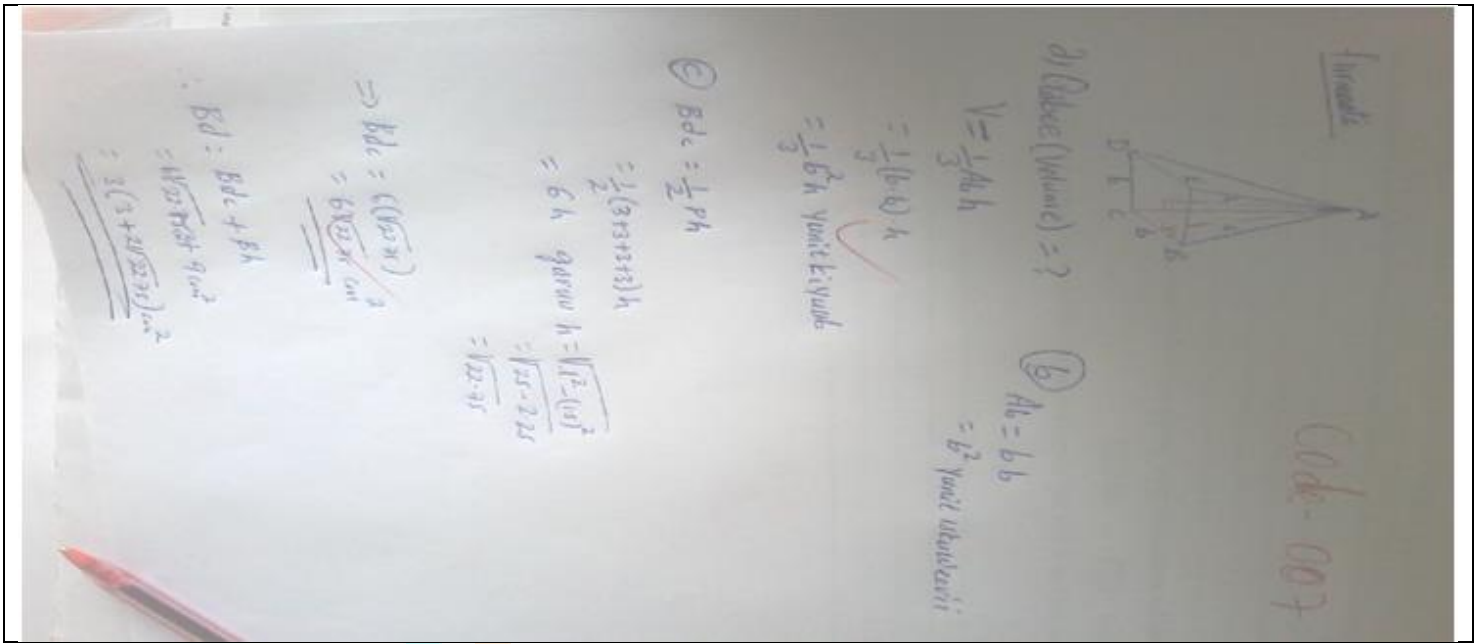 Code - 007
A
D
b
C
b
B
a) Qabee (Volume) = ?
V = 1/3 Ab h
= 1/3 (b b) h
= 1/3 b² h yunit kiyuub
(b) Ab = b b
= b² yunit
(c) Bdc = 1/2 Ph
= 1/2 (3+3+3+3) h
= 6 h garuu h =
= √25 - 2.25
= √22.75
=> Bdc = 6(√22.75)
= 6√22.75 cm²
∴ Bd = Bdc + Bh
= 6√22.75 + 9 cm²
= 3(3 + 2√22.75) cm²